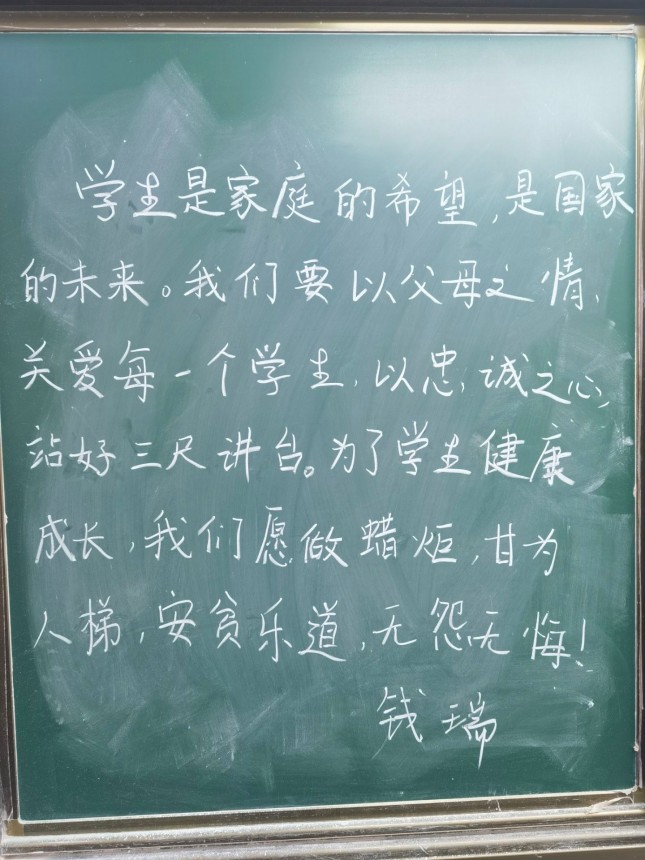 学生是家庭的希望,是国家
的未来。我们要以父母之情,
关爱每一个学生,以忠诚之心,
站好三尺讲台。为了学生健康
成长,我们愿做蜡炬,甘为
人梯,安贫乐道,无怨无悔!
钱瑞